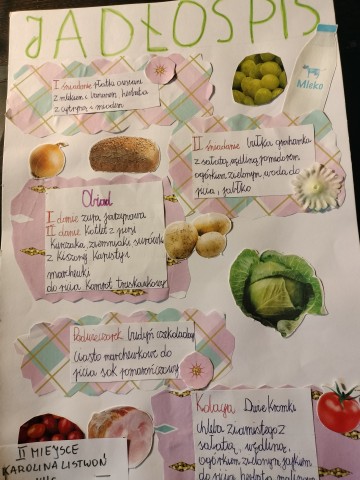 JADŁOSPIS
I śniadanie Płatki owsiane
z mlekiem i bananem herbata
z cytryną i miodem
Mleko
II śniadanie bułka grahamka
z sałatą, wędliną, pomidorem
ogórkiem zielonym, woda do
picia, jabłko
Obiad
I danie zupa jarzynowa
II danie Kotlet z piersi
kurczaka, ziemniaki surówka
z kiszonej kapusty i
marchewki
do picia kompot truskawkowy
Podwieczorek budyń czekoladowy
ciasto marchewkowe do
picia sok pomarańczowy
Kolacja Dwie Kromki
chleba razowego z
sałatą, wędliną,
ogórkiem zielonym, jajkiem
do picia herbata malinowa
II MIEJSCE
KAROLINA LISTWOŃ